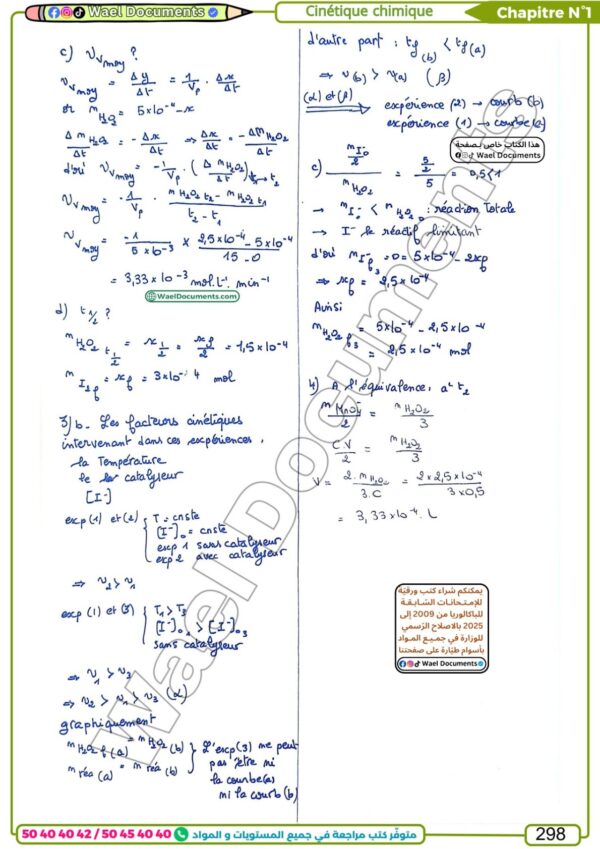 Wael Documents
Cinétique chimique
Chapitre N°1
c) Vv moy ?
Vv moy = Δy/Δt = 1/Vp . Δx/Δt
or nH2O2 = 5x10⁻⁴ - x
ΔnH2O2/Δt = - Δx/Δt ⇒ Δx/Δt = - ΔnH2O2/Δt
d'où Vv moy = - 1/Vp . (ΔnH2O2/Δt) t1 → t2
Vv moy = - 1/Vp . (nH2O2 t2 - nH2O2 t1)/(t2 - t1)
Vv moy = -1/(5x10⁻³) x (2,5x10⁻⁴ - 5x10⁻⁴)/(15 - 0)
= 3,33x10⁻³ mol.L⁻¹.min⁻¹
WaelDocuments.com
d) t1/2 ?
nH2O2 t1/2 = x1/2 = xf/2 = 1,5x10⁻⁴
nI2f = xf = 3x10⁻⁴ mol
3) b - Les facteurs cinétiques
intervenant dans ces expériences.
la Température
le catalyseur
[I⁻]
exp (1) et (2) { T = cnste
[I⁻]0 = cnste
exp 1 sans catalyseur
exp 2 avec catalyseur
⇒ v2 > v1
exp (1) et (3) { T1 > T3
[I⁻]01 > [I⁻]03
sans catalyseur
⇒ v1 > v3
⇒ v2 > v1 > v3 (α)
graphiquement
nH2O2 f (a) = nH2O2 (b) } L'exp (3) ne peut
nréa (a) = nréa (b) pas être ni
la courbe(a)
ni la courb (b)
d'autre part : tf(b) < tf(a)
⇒ v(b) > v(a) (β)
(α) et (β) ⟹ expérience (2) → courb (b)
expérience (1) → courbe(a)
هذا الكتاب خاص لصفحة
Wael Documents
c) (nI⁻0/2)/nH2O2 = (5/2)/5 = 0,5 < 1
→ nI⁻0 < nH2O2 0 : réaction totale
→ I⁻ le réactif limitant
d'où nI⁻f3 = 0 = 5x10⁻⁴ - 2xf
⇒ xf = 2,5x10⁻⁴
Ainsi
nH2O2f3 = 5x10⁻⁴ - 2,5x10⁻⁴
= 2,5x10⁻⁴ mol
4) A l'équivalence, a t2
nMnO4⁻/2 = nH2O2/3
C.V/2 = nH2O2/3
V = 2.nH2O2/3.C = 2x2,5x10⁻⁴/3x0,5
= 3,33x10⁻⁴. L
يمكنكم شراء كتب ورقيّة
للإمتحانات السّابقة
للباكالوريا من 2009 إلى
2025 بالاصلاح الرّسمي
للوزارة في جميع المواد
بأسوام طيّارة على صفحتنا
Wael Documents
Wael Documents
50 40 40 42 / 50 45 40 40 متوفّر كتب مراجعة في جميع المستويات و المواد
298